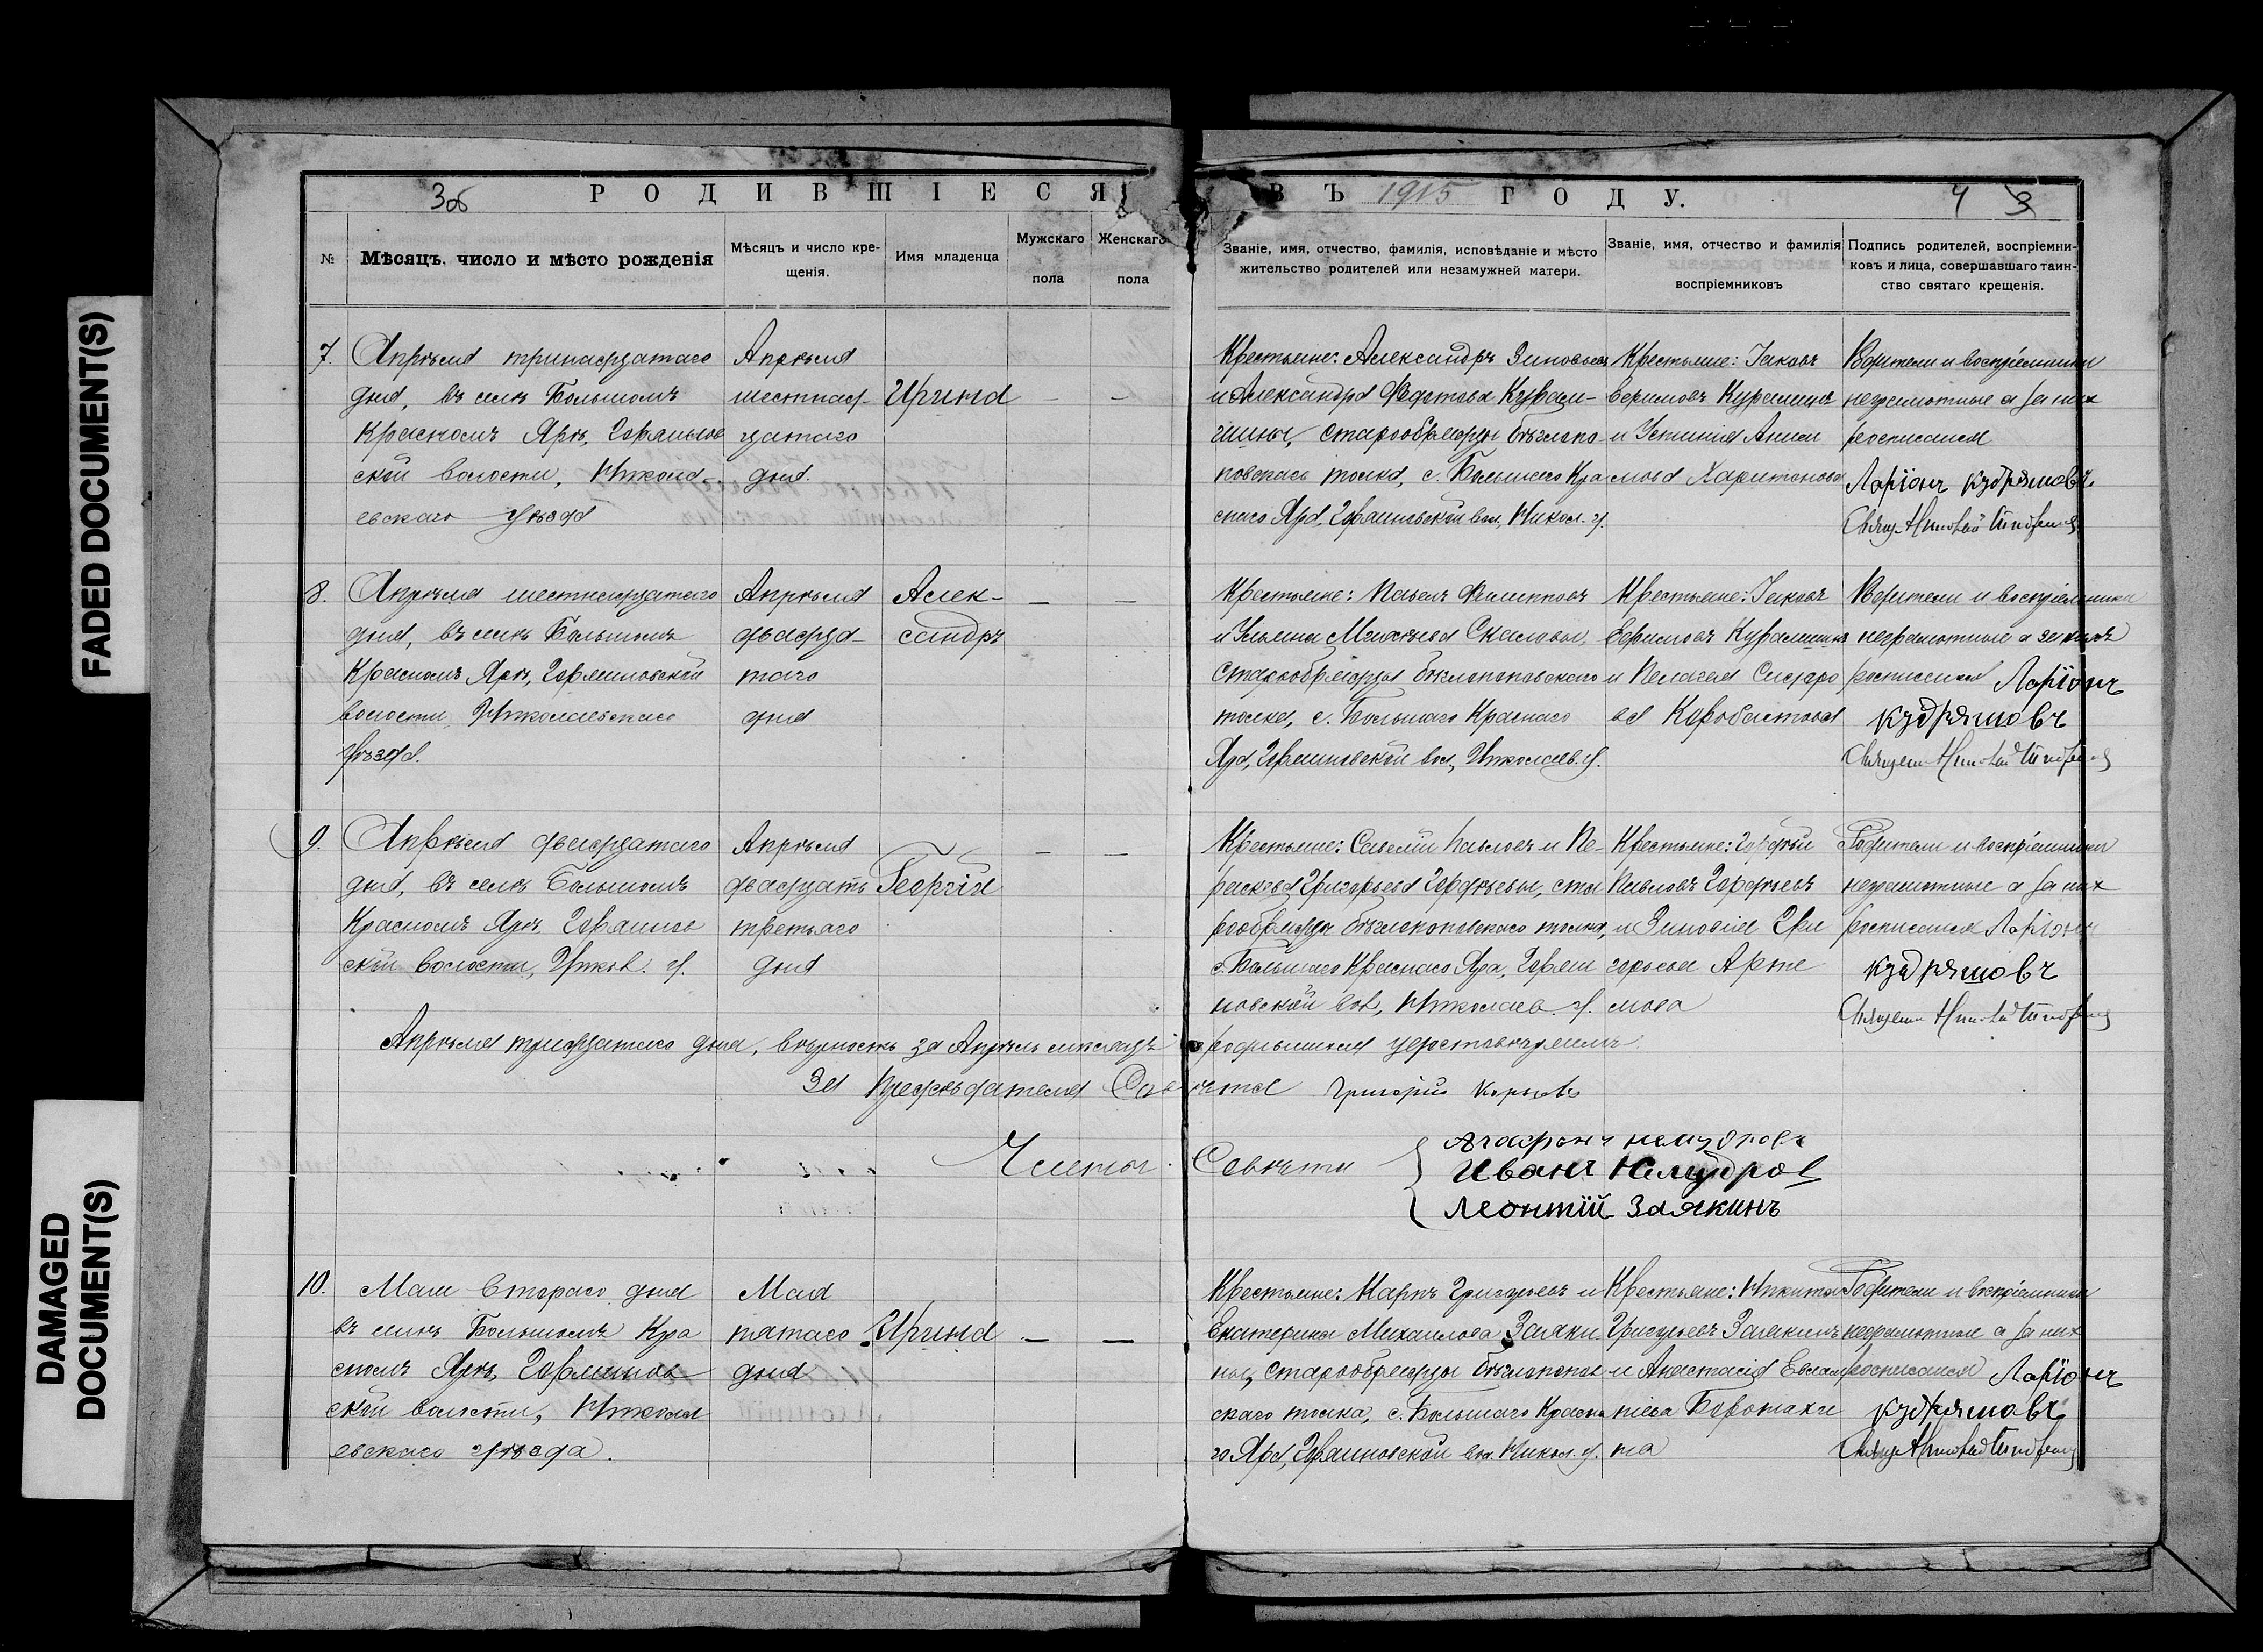 FADED DOCUMENT(S)
DAMAGED DOCUMENT(S)
3об РОДИВШІЕСЯ ВЪ 1915 ГОДУ. 4 3
№
Мѣсяцъ, число и мѣсто рожденія
Мѣсяцъ и число кре-
щенія.
Имя младенца
Мужскаго
пола
Женскаго
пола
Званіе, имя, отчество, фамилія, исповѣданіе и мѣсто
жительство родителей или незамужней матери.
Званіе, имя, отчество и фамилія
воспріемниковъ
Подпись родителей, воспріемни-
ковъ и лица, совершавшаго таин-
ство святаго крещенія.
7.
Апрѣля тринадцатаго
дня, въ селѣ Большомъ
Красномъ Ярѣ, Горяинов
ской волости, Никола-
евскаго уѣзда
Апрѣля
шестнад-
цатаго
дня.
Ирина
Крестьяне: Александръ Зиновьевъ
и Александра Федотова
старообрядцы бѣглопо
повскаго толка, с. Большаго Кра
снаго Яра, Горяиновской вол., Никол. у.
Крестьяне: Іаковъ
Ефимовъ
и Устинія
Харитонова
Родители и воспріемники
неграмотные а за них
росписался
Ларіонъ Кудряшовъ.
Свящ.
8.
Апрѣля шестнадцатаго
дня, въ селѣ Большомъ
Красномъ Ярѣ, Горяиновской
волости Николаевскаго
уѣзда.
Апрѣля
двадца-
таго
дня
Алек-
сандръ
Крестьяне: Павелъ Филипповъ
и Ульяна
старообрядцы бѣглопоповскаго
толка, с. Большаго Краснаго
Яра, Горяиновской вол., Николаев. у.
Крестьяне: Іаковъ
Ефимовъ
и Пелагея Сидоро
ва
Родители и воспріемники
неграмотные а за нихъ
росписался Ларіонъ
Кудряшовъ
Священ
9.
Апрѣля двадцатаго
дня, въ селѣ Большомъ
Красномъ Ярѣ Горяинов
ской волости, Никол. у.
Апрѣля
двадцать
третьяго
дня
Георгій
Крестьяне: Савелій Павловъ и Па-
раскева Григорьева Гордѣевы, ста
рообрядцы бѣглопоповскаго толка,
с. Большаго Краснаго Яра, Горяи
новской вол., Николаев. у.
Крестьяне:
Павловъ Гордѣевъ
и Зиновія Гри
горьева Арта
мова
Родители и воспріемники
неграмотные а за них
росписался Ларіонъ
Кудряшовъ
Священ
Апрѣля тридцатаго дня, вѣрность за Апрѣль мѣсяцъ о родившихся удостовѣряемъ.
За Предсѣдателя Совѣта Григорій
Члены Совѣта
Агафонъ
Иванъ
Леонтій Заякинъ
10.
Мая втораго дня
въ селѣ Большомъ Кра
сномъ Ярѣ, Горяинов
ской волости, Никола
евскаго уѣзда.
Мая
пятаго
дня
Ирина
Крестьяне: Маркъ Григорьевъ и
Екатерина Михаилова Заяки
ны, старообрядцы бѣглопопов
скаго толка, с. Большаго Красна
го Яра, Горяиновской вол. Никол. у.
Крестьяне: Никита
Григорьевъ Заякинъ
и Анастасія Евлам
піева
Родители и воспріемники
неграмотные а за них
росписался Ларіонъ
Кудряшовъ
Свящ